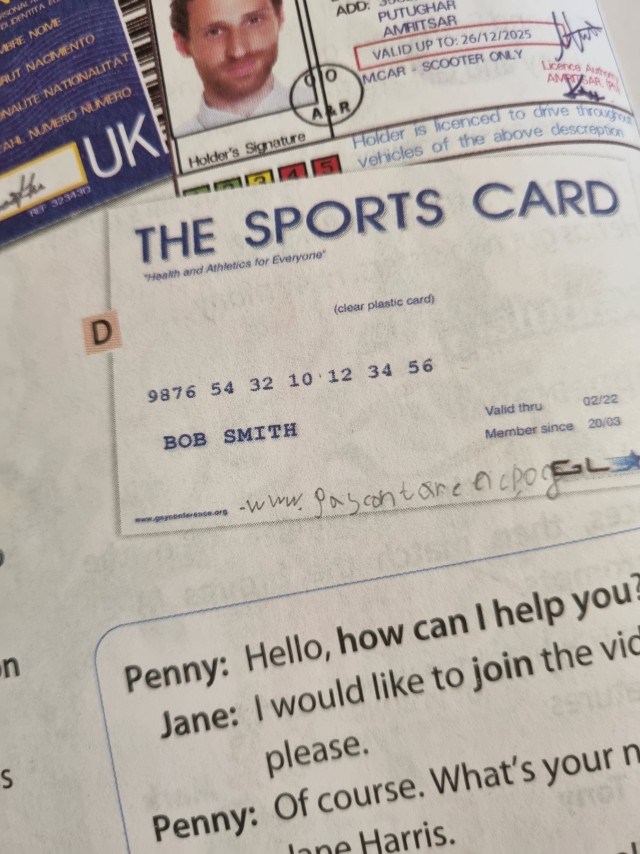 NAUTE NATIONALITAT
UK
REF 323430
ADD:
PUTUGHAR
AMRITSAR
VALID UP TO: 26/12/2025
MCAR - SCOOTER ONLY
A & R
Holder's Signature
Holder is licenced to drive throughout
vehicles of the above descreption
THE SPORTS CARD
"Health and Athletics for Everyone"
(clear plastic card)
D
9876 54 32 10 12 34 56
BOB SMITH
Valid thru 02/22
Member since 20/03
www.gaysconference.org
Penny: Hello, how can I help you?
Jane: I would like to join the vid
please.
Penny: Of course. What's your n
Jane Harris.